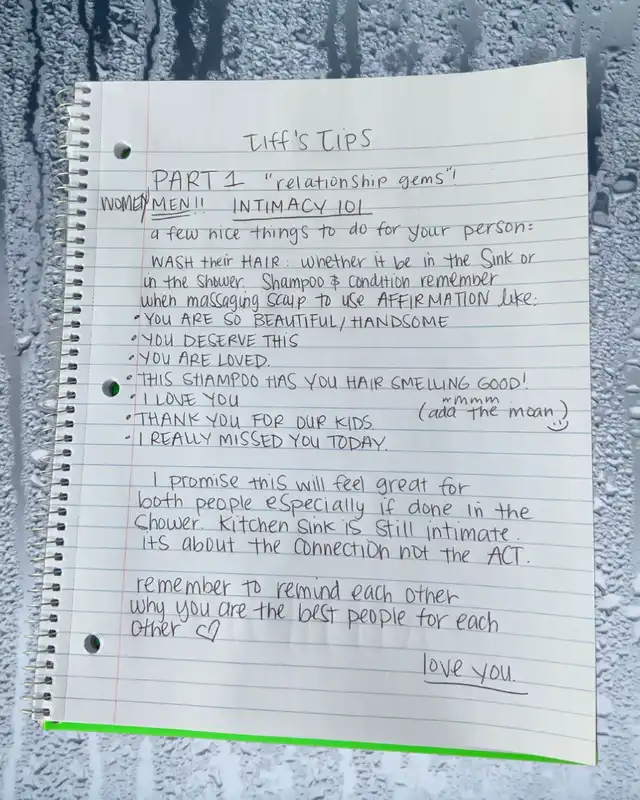 Tiff's Tips
PART 1 "relationship gems"!
WOMEN/MEN!! INTIMACY 101
a few nice things to do for your person:
WASH their HAIR: whether it be in the Sink or
in the shower. Shampoo & condition remember
when massaging scalp to use AFFIRMATION like:
• YOU ARE SO BEAUTIFUL/HANDSOME
• YOU DESERVE THIS
• YOU ARE LOVED.
• THIS SHAMPOO HAS YOU HAIR SMELLING GOOD!
mmmm
• I LOVE YOU (add the moan)
• THANK YOU FOR OUR KIDS
• I REALLY MISSED YOU TODAY.
I promise this will feel great for
both people especially if done in the
Shower. Kitchen Sink is still intimate.
its about the connection not the ACT.
remember to remind each other
why you are the best people for each
other ♡
love you.